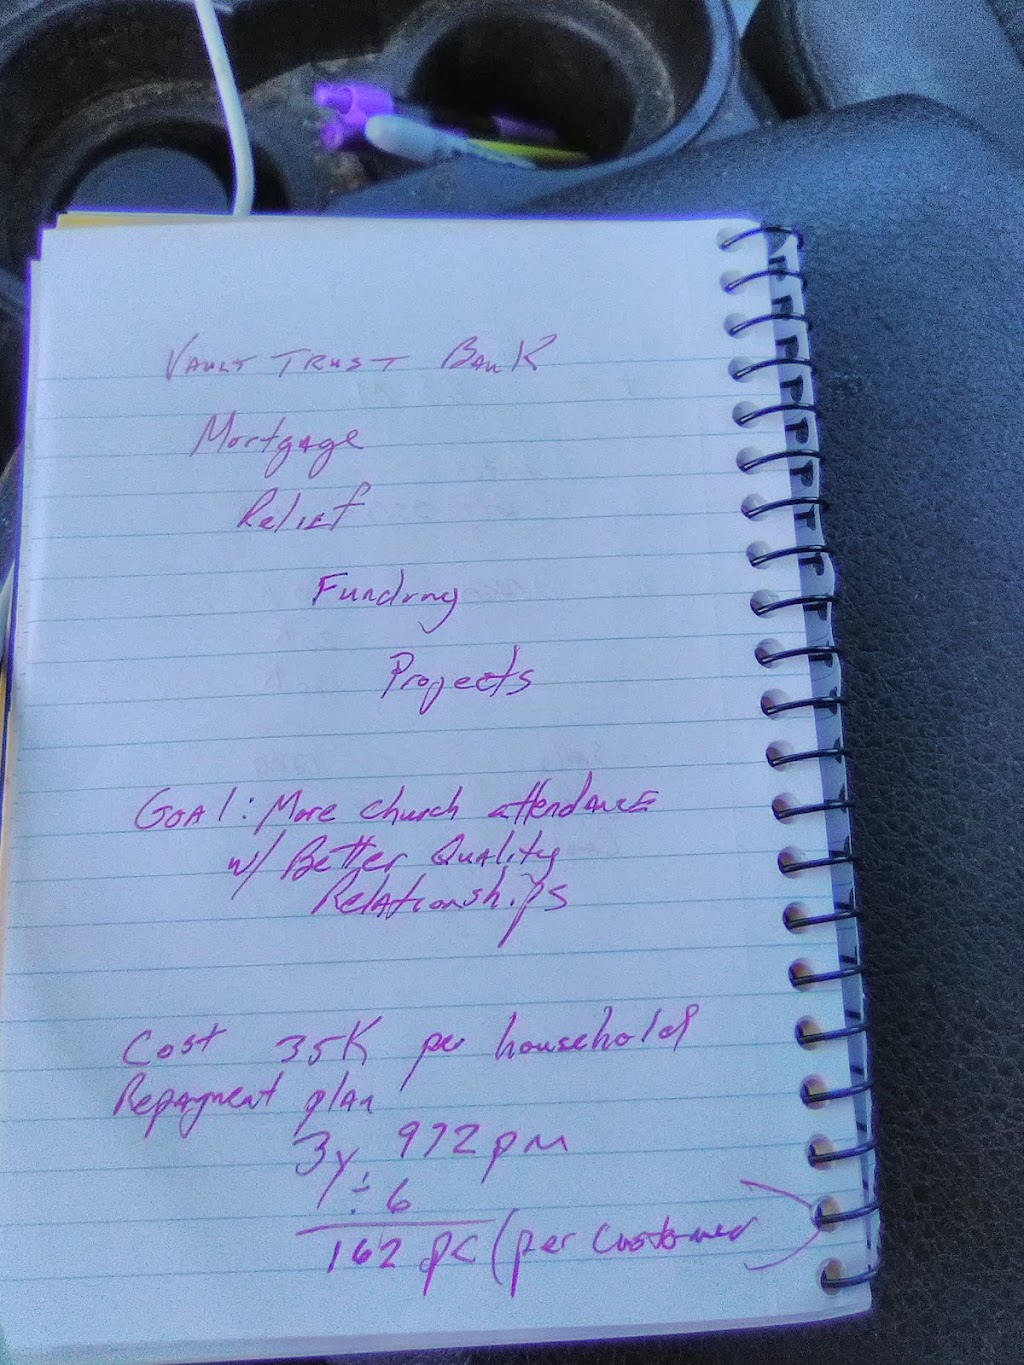 VAULT TRUST BANK
Mortgage
Relief
Funding
Projects
GOAl: More church attendANCE
w/ Better Quality
Relationships
Cost 35K per household
Repayment plan
3y 972 pm
÷ 6
162 pc (per customer)